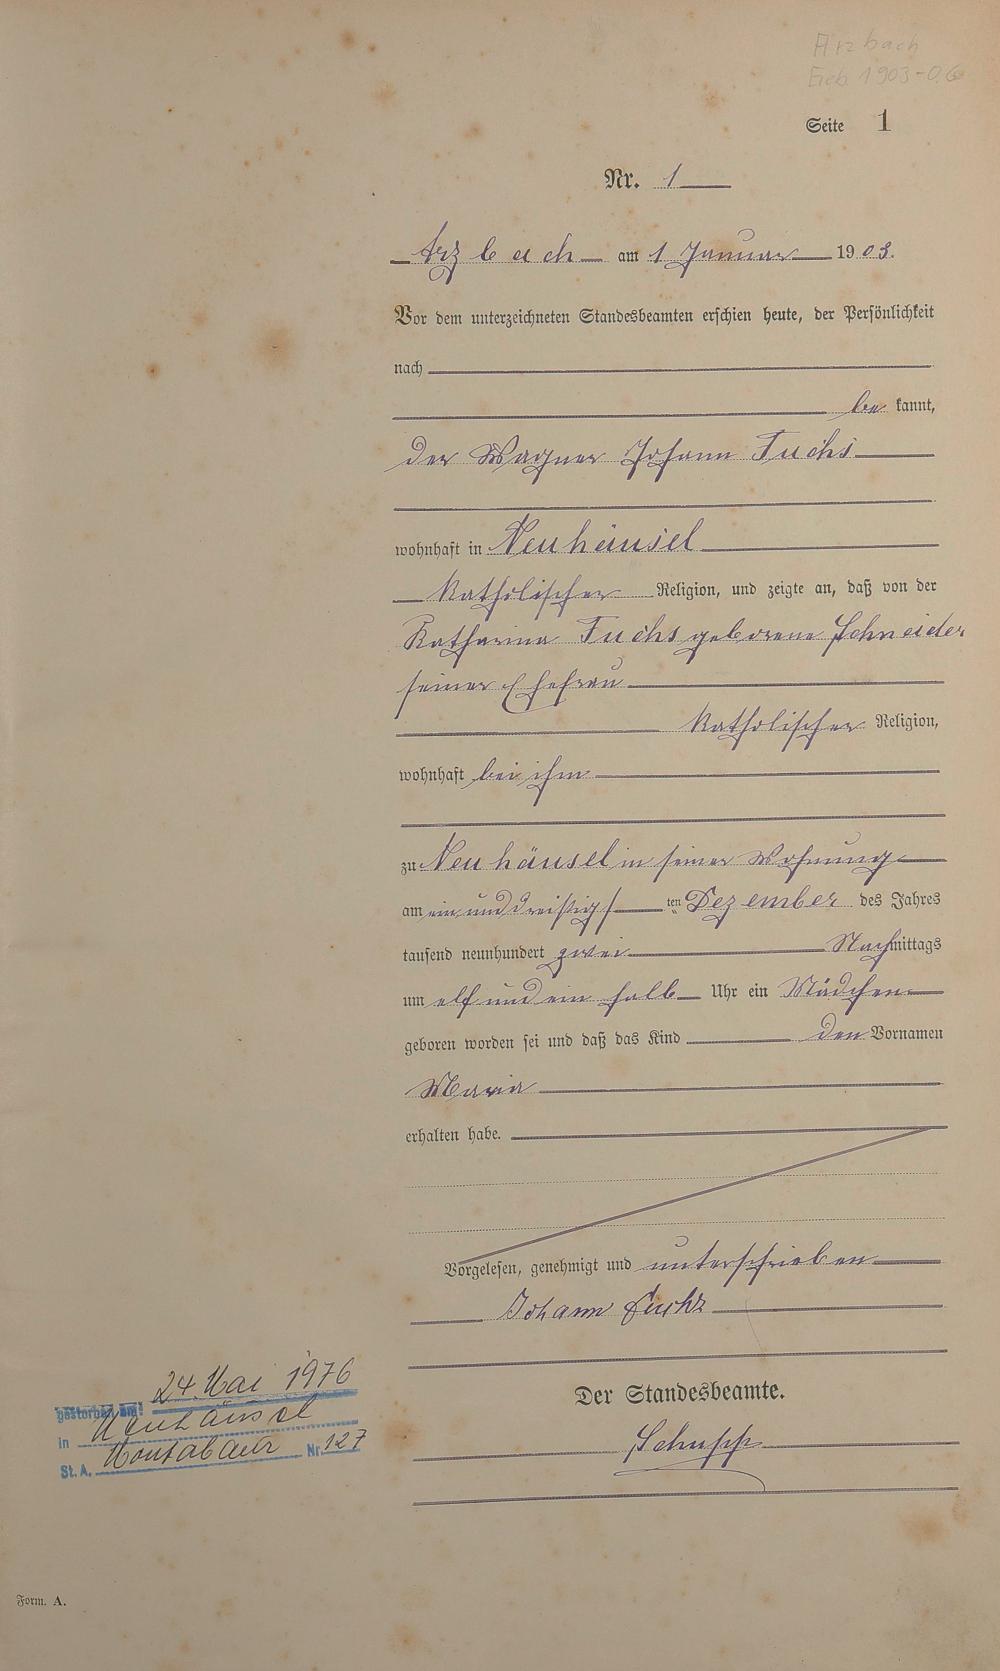 Arzbach
Geb. 1903-06
Seite 1
Nr. 1
Arzbach am 1 Januar 1903.
Vor dem unterzeichneten Standesbeamten erschien heute, der Persönlichkeit
nach
be kannt,
der Wagner Johann Fuchs
wohnhaft in Neuhäusel
katholischer Religion, und zeigte an, daß von der
Katharina Fuchs geborene Schneider
seiner Ehefrau
katholischer Religion,
wohnhaft bei ihm
zu Neuhäusel in seiner Wohnung
am ein und dreißigs ten Dezember des Jahres
tausend neunhundert zwei Nachmittags
um elf und ein halb Uhr ein Mädchen
geboren worden sei und daß das Kind den Vornamen
Maria
erhalten habe.
Vorgelesen, genehmigt und unterschrieben
Johann Fuchs
Der Standesbeamte.
Schupp
gestorben am: 24. Mai 1976
in Neuhäusel
St. A. Montabaur Nr. 127
Form. A.